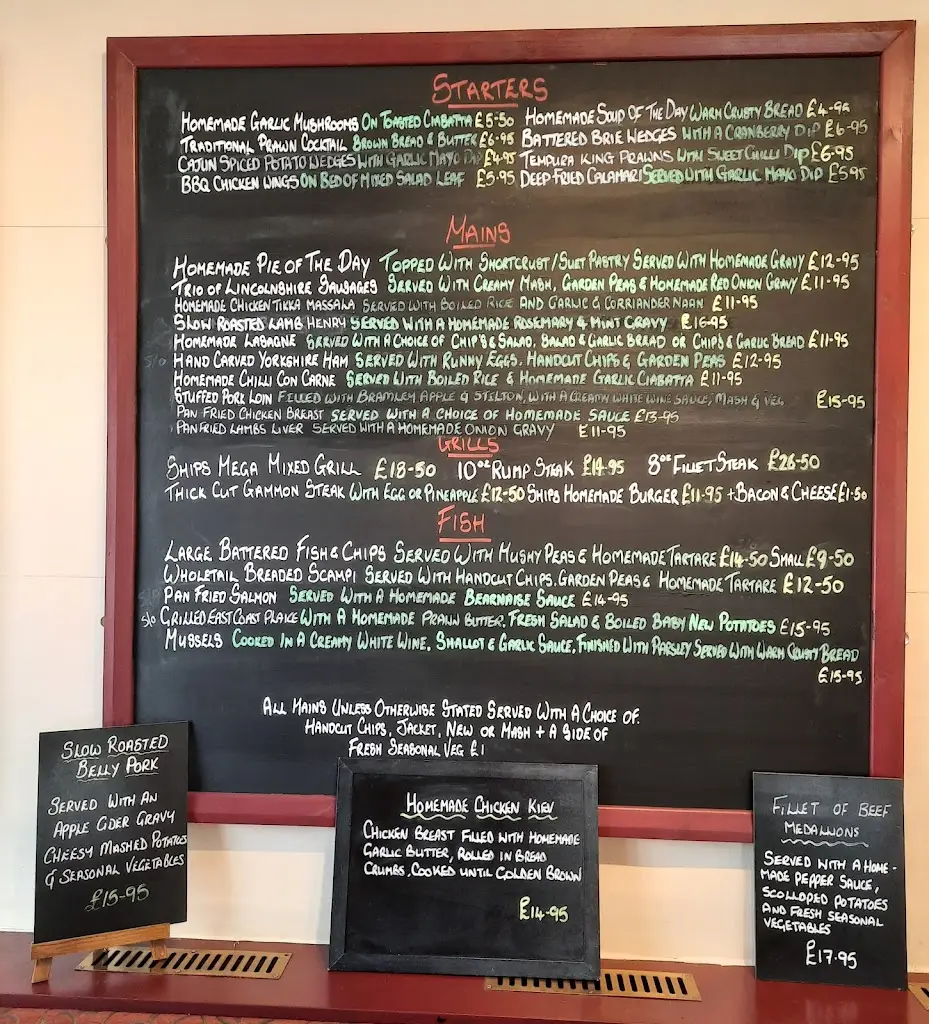 STARTERS
HOMEMADE GARLIC MUSHROOMS ON TOASTED CIABATTA £5-50
HOMEMADE SOUP OF THE DAY WARM CRUSTY BREAD £4-95
TRADITIONAL PRAWN COCKTAIL BROWN BREAD & BUTTER £6-95
BATTERED BRIE WEDGES WITH A CRANBERRY DIP £6-95
CAJUN SPICED POTATO WEDGES WITH GARLIC MAYO DIP £4-95
TEMPURA KING PRAWNS WITH SWEET CHILLI DIP £6-95
BBQ CHICKEN WINGS ON BED OF MIXED SALAD LEAF £5-95
DEEP FRIED CALAMARI SERVED WITH GARLIC MAYO DIP £5-95
MAINS
HOMEMADE PIE OF THE DAY TOPPED WITH SHORTCRUST/SUET PASTRY SERVED WITH HOMEMADE GRAVY £12-95
TRIO OF LINCOLNSHIRE SAUSAGES SERVED WITH CREAMY MASH, GARDEN PEAS & HOMEMADE RED ONION GRAVY £11-95
HOMEMADE CHICKEN TIKKA MASSALA SERVED WITH BOILED RICE AND GARLIC & CORRIANDER NAAN £11-95
SLOW ROASTED LAMB HENRY SERVED WITH A HOMEMADE ROSEMARY & MINT GRAVY £16-95
HOMEMADE LASAGNE SERVED WITH A CHOICE OF CHIPS & SALAD, SALAD & GARLIC BREAD OR CHIPS & GARLIC BREAD £11-95
HAND CARVED YORKSHIRE HAM SERVED WITH RUNNY EGGS, HANDCUT CHIPS & GARDEN PEAS £12-95
HOMEMADE CHILLI CON CARNE SERVED WITH BOILED RICE & HOMEMADE GARLIC CIABATTA £11-95
STUFFED PORK LOIN FILLED WITH BRAMLEY APPLE & STILTON, WITH A CREAMY WHITE WINE SAUCE, MASH & VEG £15-95
PAN FRIED CHICKEN BREAST SERVED WITH A CHOICE OF HOMEMADE SAUCE £13-95
PAN FRIED LAMBS LIVER SERVED WITH A HOMEMADE ONION GRAVY £11-95
GRILLS
SHIPS MEGA MIXED GRILL £18-50 10oz RUMP STEAK £14.95 8oz FILLET STEAK £26-50
THICK CUT GAMMON STEAK WITH EGG OR PINEAPPLE £12-50 SHIPS HOMEMADE BURGER £11-95 + BACON & CHEESE £1-50
FISH
LARGE BATTERED FISH & CHIPS SERVED WITH MUSHY PEAS & HOMEMADE TARTARE £14-50 SMALL £9-50
WHOLETAIL BREADED SCAMPI SERVED WITH HANDCUT CHIPS, GARDEN PEAS & HOMEMADE TARTARE £12-50
PAN FRIED SALMON SERVED WITH A HOMEMADE BEARNAISE SAUCE £14-95
S/O GRILLED EAST COAST PLAICE WITH A HOMEMADE PRAWN BUTTER, FRESH SALAD & BOILED BABY NEW POTATOES £15-95
MUSSELS COOKED IN A CREAMY WHITE WINE, SHALLOT & GARLIC SAUCE, FINISHED WITH PARSLEY SERVED WITH WARM CRUSTY BREAD
£15-95
ALL MAINS UNLESS OTHERWISE STATED SERVED WITH A CHOICE OF
HANDCUT CHIPS, JACKET, NEW OR MASH + A SIDE OF
FRESH SEASONAL VEG £1
SLOW ROASTED
BELLY PORK
SERVED WITH AN
APPLE CIDER GRAVY
CHEESY MASHED POTATOES
& SEASONAL VEGETABLES
£15-95
HOMEMADE CHICKEN KIEV
CHICKEN BREAST FILLED WITH HOMEMADE
GARLIC BUTTER, ROLLED IN BREAD
CRUMBS, COOKED UNTIL GOLDEN BROWN
£14-95
FILLET OF BEEF
MEDALLIONS
SERVED WITH A HOME-
MADE PEPPER SAUCE,
SCOLLOPED POTATOES
AND FRESH SEASONAL
VEGETABLES
£17.95